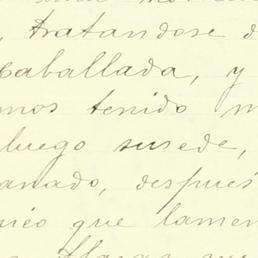 , tratandose d
caballada, y
mos tenido m
luego susede,
anado, despues
nico que lamen